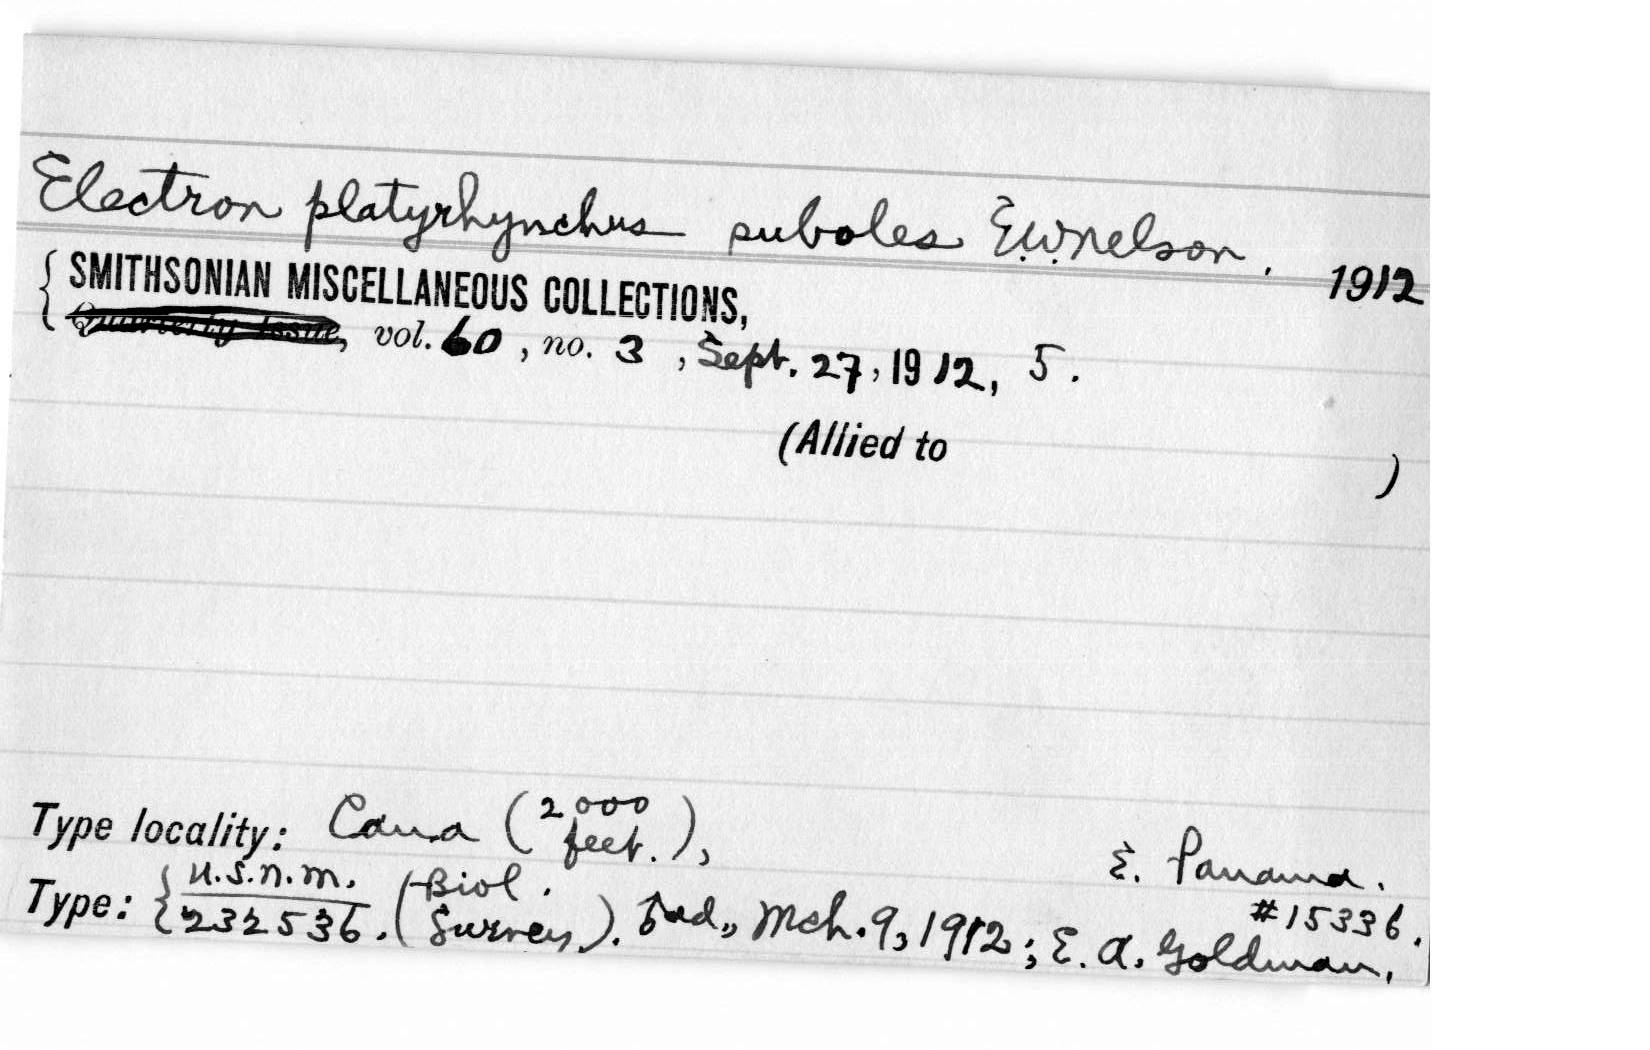 Electron platyrhynchus suboles E.W. Nelson. 1912
{ SMITHSONIAN MISCELLANEOUS COLLECTIONS,
Quarterly Issue, vol. 60, no. 3, Sept. 27, 1912, 5.
(Allied to )
Type locality: Cana (2000 feet.), E. Panama.
Type: { U.S.N.M. 232536. (Biol. Survey). ad., Mch. 9, 1912; E. A. Goldman, #15336.